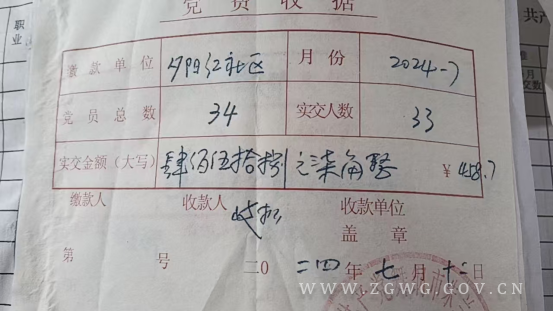 党费收据
缴款单位 夕阳红社区 月份 2024-7
党员总数 34 实交人数 33
实交金额（大写） 肆佰伍拾捌元柒角整 ¥458.7
缴款人 收款人 收款单位
盖章
第 号 二0二四年七月十二日
职业
共产
WWW.ZGWG.GOV.CN